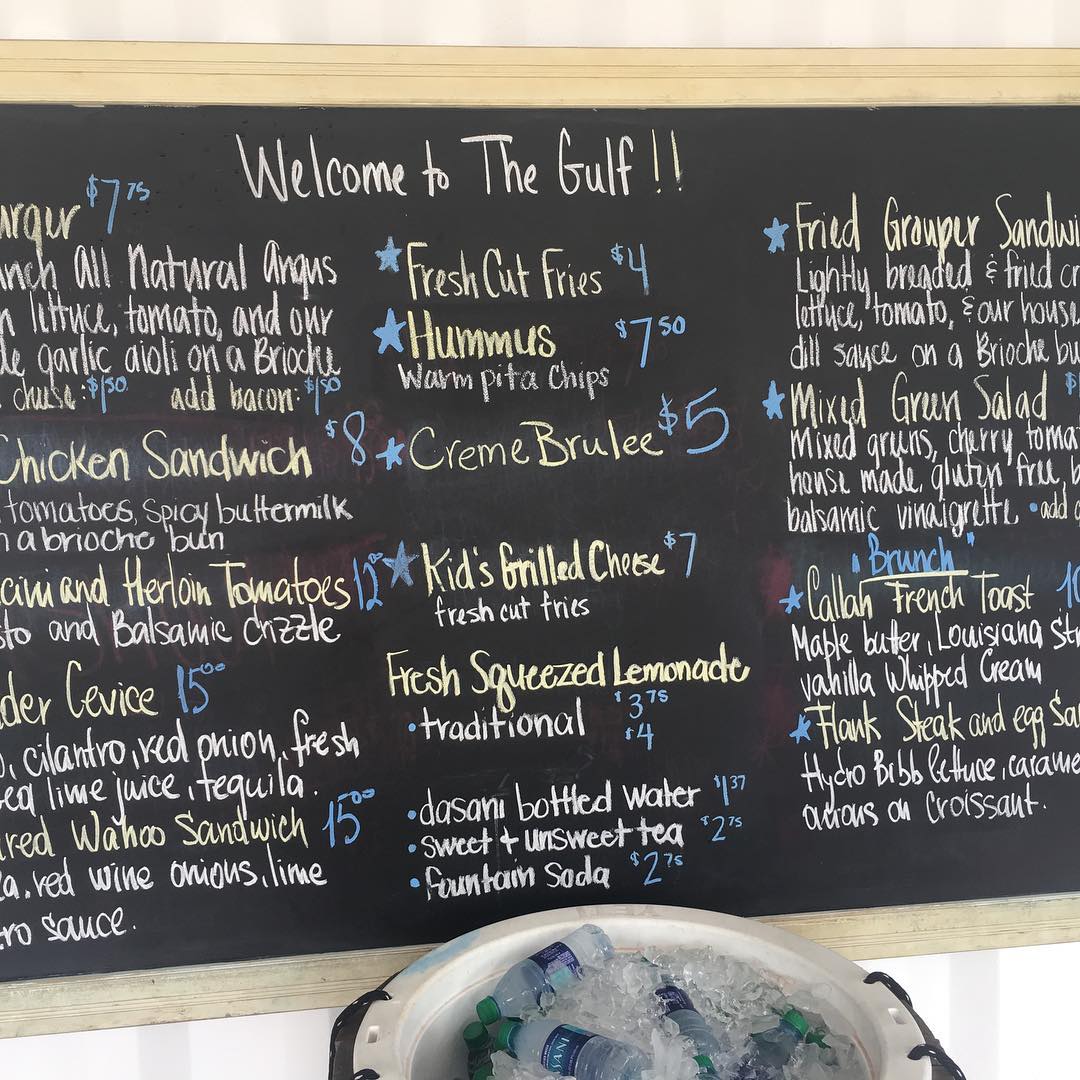 Welcome to The Gulf !!
$7 75
anch All Natural Angus
lettuce, tomato, and our
garlic aioli on a Brioche
cheese: $1.50 add bacon: $1.50
Chicken Sandwich $8
tomatoes, Spicy buttermilk
n a brioche bun
and Herloin Tomatoes 12 00
sto and Balsamic drizzle
Cevice 15 00
, cilantro, red onion, fresh
lime juice, tequila.
red Wahoo Sandwich 15 00
red wine onions, lime
ro sauce.
Fresh Cut Fries $4
Hummus $7 50
Warm pita chips
Creme Brulee $5
Kid's Grilled Cheese $7
fresh cut fries
Fresh Squeezed Lemonade
• traditional $3 75
$4
• dasani bottled water $1 37
• sweet + unsweet tea $2 75
• fountain Soda $2 75
Fried Grouper Sandwi
Lightly breaded & fried cr
lettuce, tomato, & our house
dill sauce on a Brioche bu
Mixed Green Salad $
Mixed greens, cherry tomat
house made, gluten free, b
balsamic vinaigrette • add
"Brunch"
Callah French Toast 10
Maple butter, Louisiana Str
vanilla Whipped Cream
Flank Steak and egg Sa
Hydro Bibb lettuce, carame
onions on Croissant.
SANI